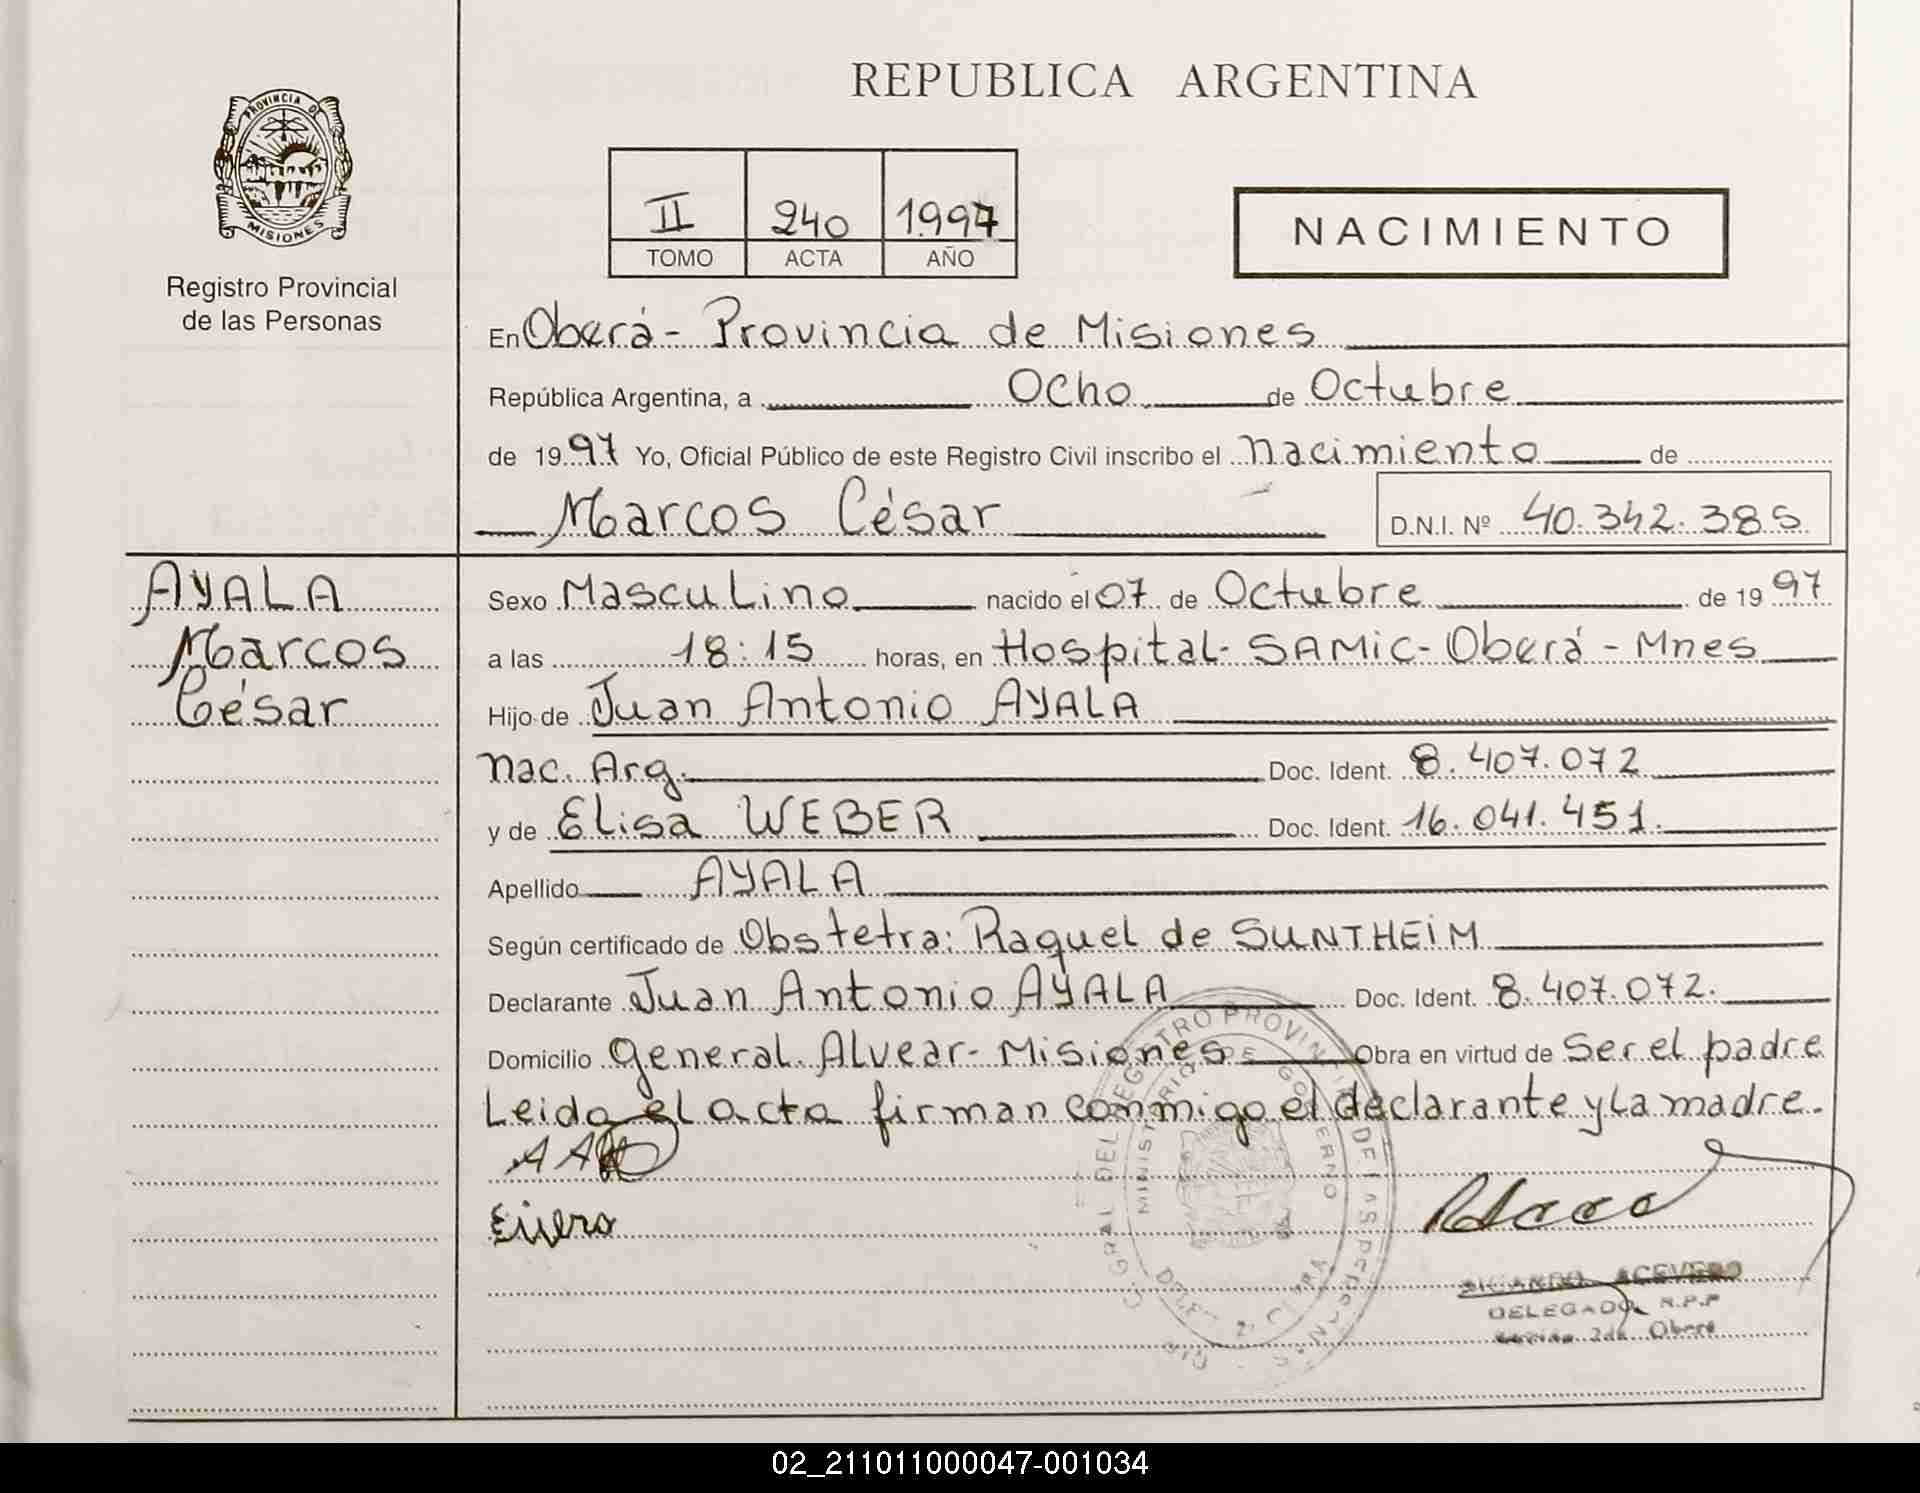 REPUBLICA ARGENTINA
PROVINCIA DE
MISIONES
Registro Provincial
de las Personas
II 240 1997
TOMO ACTA AÑO
NACIMIENTO
En Oberá - Provincia de Misiones
República Argentina, a Ocho de Octubre
de 1997 Yo, Oficial Público de este Registro Civil inscribo el Nacimiento de
Marcos César D.N.I. Nº 40.342.385
AYALA
Marcos
César
Sexo Masculino nacido el 07 de Octubre de 1997
a las 18:15 horas, en Hospital - SAMIC - Oberá - Mnes
Hijo de Juan Antonio AYALA
Nac. Arg. Doc. Ident. 8.407.072
y de Elisa WEBER Doc. Ident. 16.041.451.
Apellido AYALA
Según certificado de Obstetra: Raquel de SUNTHEIM
Declarante Juan Antonio AYALA Doc. Ident. 8.407.072.
Domicilio General Alvear - Misiones Obra en virtud de Ser el padre
Leida el acta firman conmigo el declarante y la madre.
MINISTERIO DE GOBIERNO
ACEVERO
DELEGADO R.P.P
2da Oberá
02_211011000047-001034